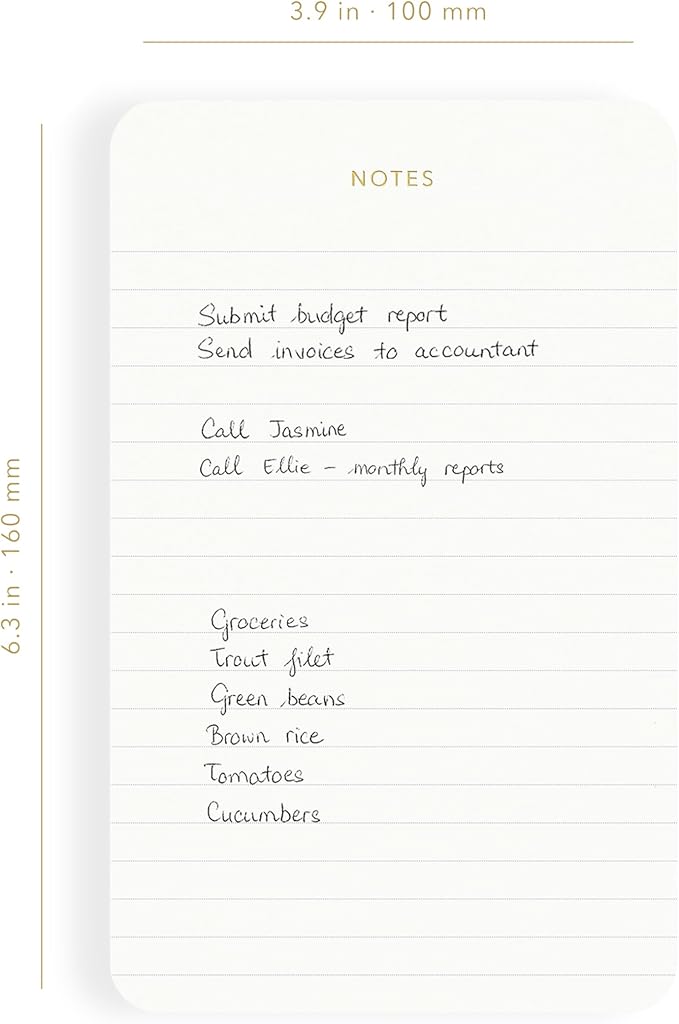 3.9 in · 100 mm
6.3 in · 160 mm
NOTES
Submit budget report
Send invoices to accountant
Call Jasmine
Call Ellie - monthly reports
Groceries
Trout filet
Green beans
Brown rice
Tomatoes
Cucumbers